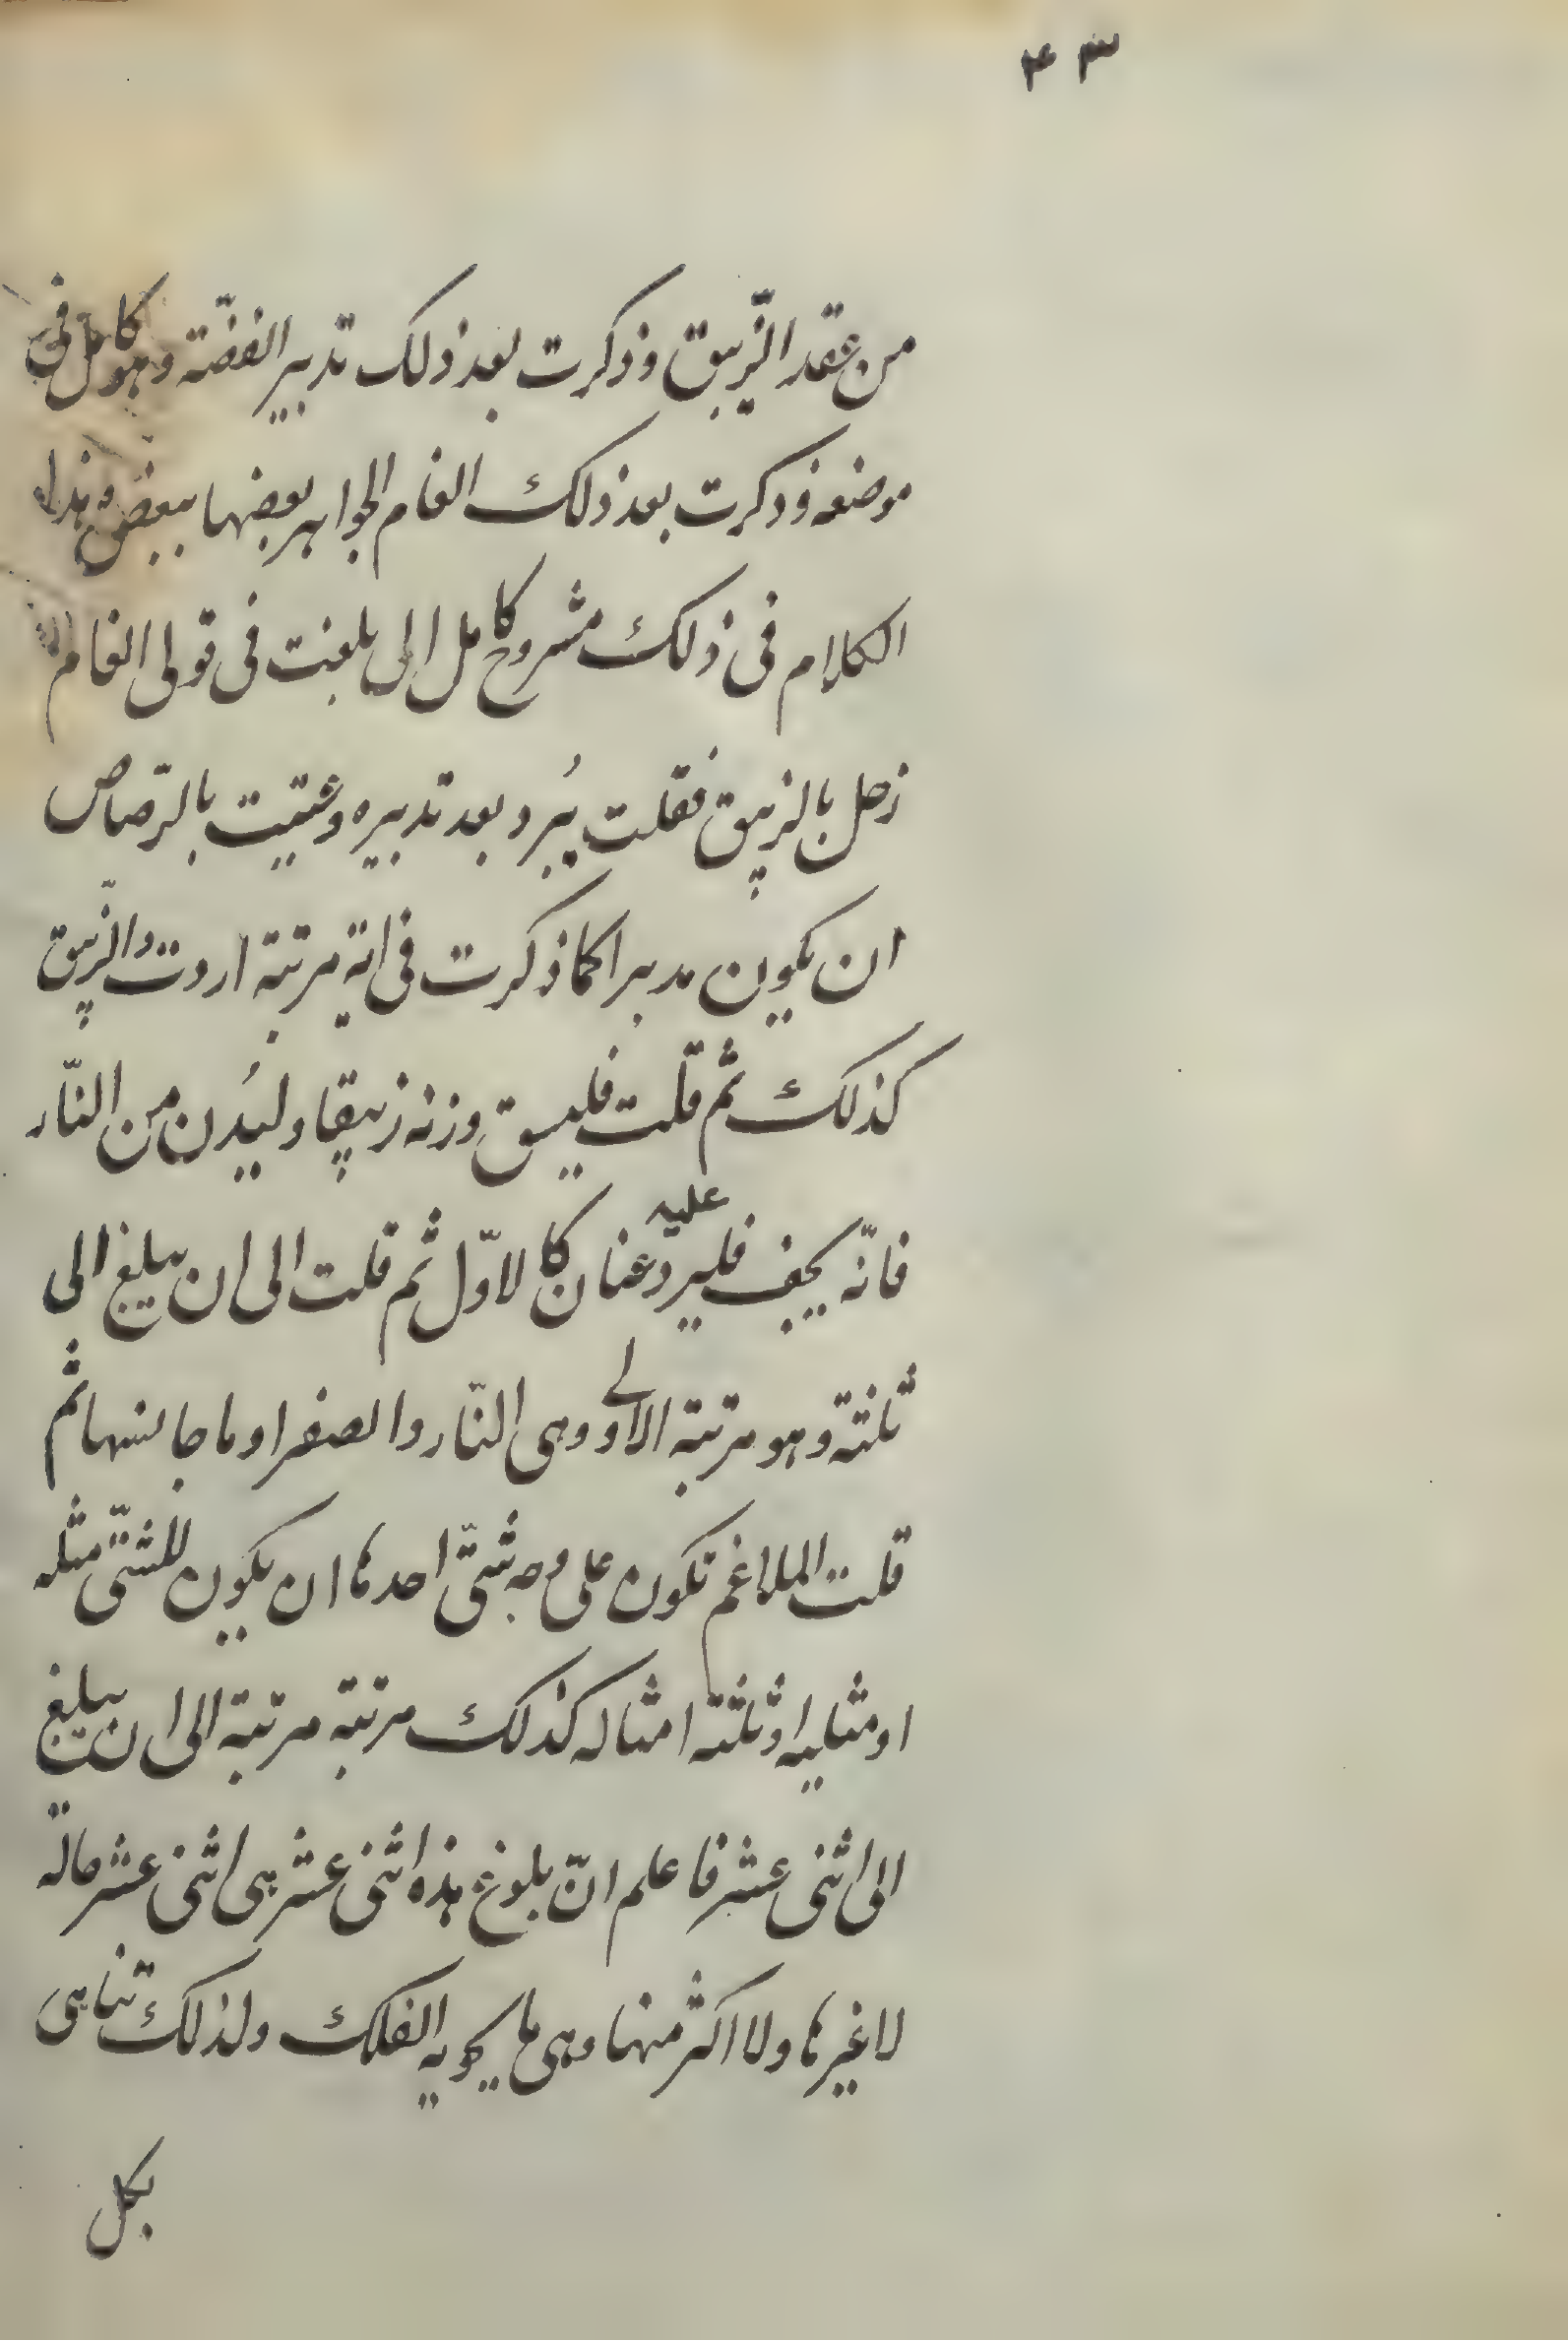 ٤٣
من عقد الزّيبق وذكرت بعد ذلك تدبير الفضّة وهو كامل فى
موضعه وذكرت بعد ذلك الغام الجواهر بعضها ببعض وهذا
الكلام فى ذلك مشروح كامل الى بلغت فى قولى الغام
زحل بالزيبق فقلت يُبرد بعد تدبيره وعنيت بالرّصاص
ان يكون مدبرا كما ذكرت فى اية مرتبة اردت والزّيبق
كذلك ثم قلت فليسق وزنه زيبقا وليُدن من النّار
فانّه يجف فليرد عليه عنان كالاوّل ثم قلت الى ان يبلغ الى
ثلثة وهو مرتبة الاولى وهى النّار والصفرا وما جانسها ثم
قلت الملاغم تكون على وجه شتّى احدها ان يكون للشئ مثله
او مثليه او ثلثة امثاله كذلك مرتبة مرتبة الى ان يبلغ
الى اثنى عشر فاعلم انّ بلوغ هذه اثنى عشر هى اثنى عشر حالة
لا غيرها ولا اكثر منها وهى ما يحويه الفلك ولذلك تناهى
بكل